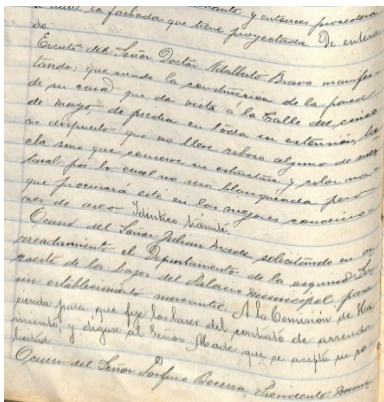 la fachada que tiene proyectada De entera
do.
Escrito del Señor Doctor Adalberto Bravo manifes
tando: que siendo la construcción de la pared
de su casa que da vista á la Calle del cinco
de mayo, de piedra en toda su extensión, ha
dispuesto que no lleve reboso alguno de mez
cla sino que conserve su estructura y color na
tural por lo cual no será blanqueada pero
que procurará esté en las mejores condicio
nes de aseo Idéntico trámite
Ocurso del Señor Julian Made solicitando en a
rrendamiento el Departamento de la
parte de los bajos del Palacio municipal para
un establecimiento mercantil. A la Comisión de Ha
cienda para que fije las bases del contrato de arrenda
miento, y dígase al Señor Made, que se acepta su so
licitud
Ocurso del Señor Porfirio Becerra, Presidente